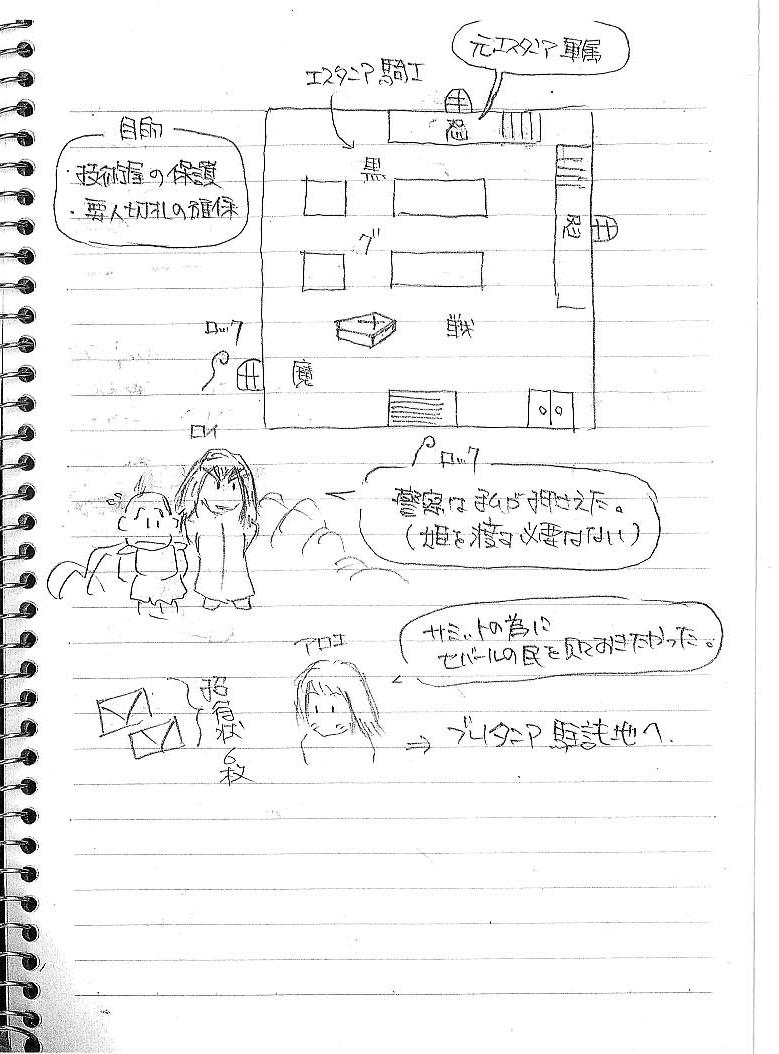 元エスタニア軍属
エスタニア騎士
目的
・技術屋の保護
・要人切札の確保
忍
黒
忍
グ
戦
魔
ロック
ロイ
ロック
警察は私が押さえた。
(姫を渡す必要はない)
サミットの為に
セバールの民を見ておきたかった。
アロエ
招待状6枚
⇒ ブリタニア駐屯地へ.